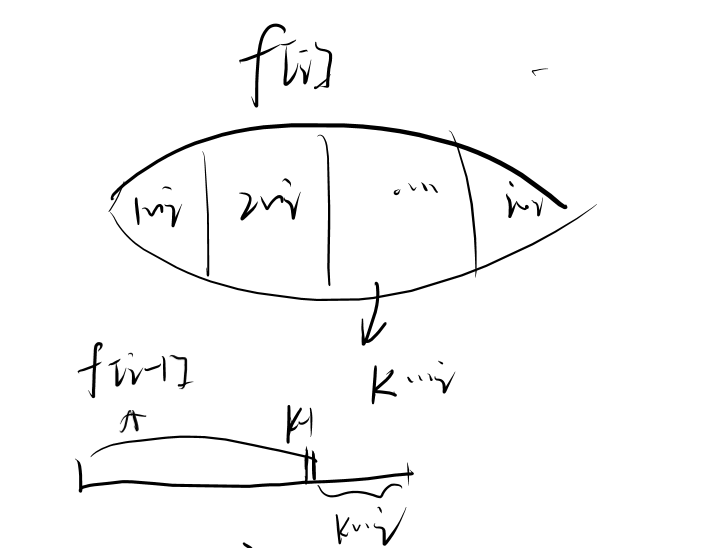 f[i]
1~i 2~i ... i~i
k...i
f[i-1]
k-1
k~i